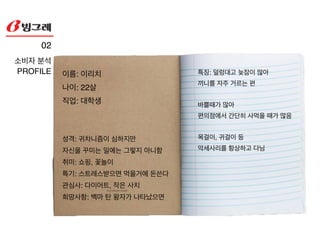 빙그레
02
소비자 분석
PROFILE
이름: 이리치
나이: 22살
직업: 대학생
성격: 귀차니즘이 심하지만
자신을 꾸미는 일에는 그렇지 아니함
취미: 쇼핑, 꽃놀이
특기: 스트레스받으면 먹을거에 돈쓴다
관심사: 다이어트, 작은 사치
희망사항: 백마 탄 왕자가 나타났으면
특징: 덜렁대고 늦잠이 많아
끼니를 자주 거르는 편
바쁠때가 많아
편의점에서 간단히 사먹을 때가 많음
목걸이, 귀걸이 등
악세사리를 항상하고 다님